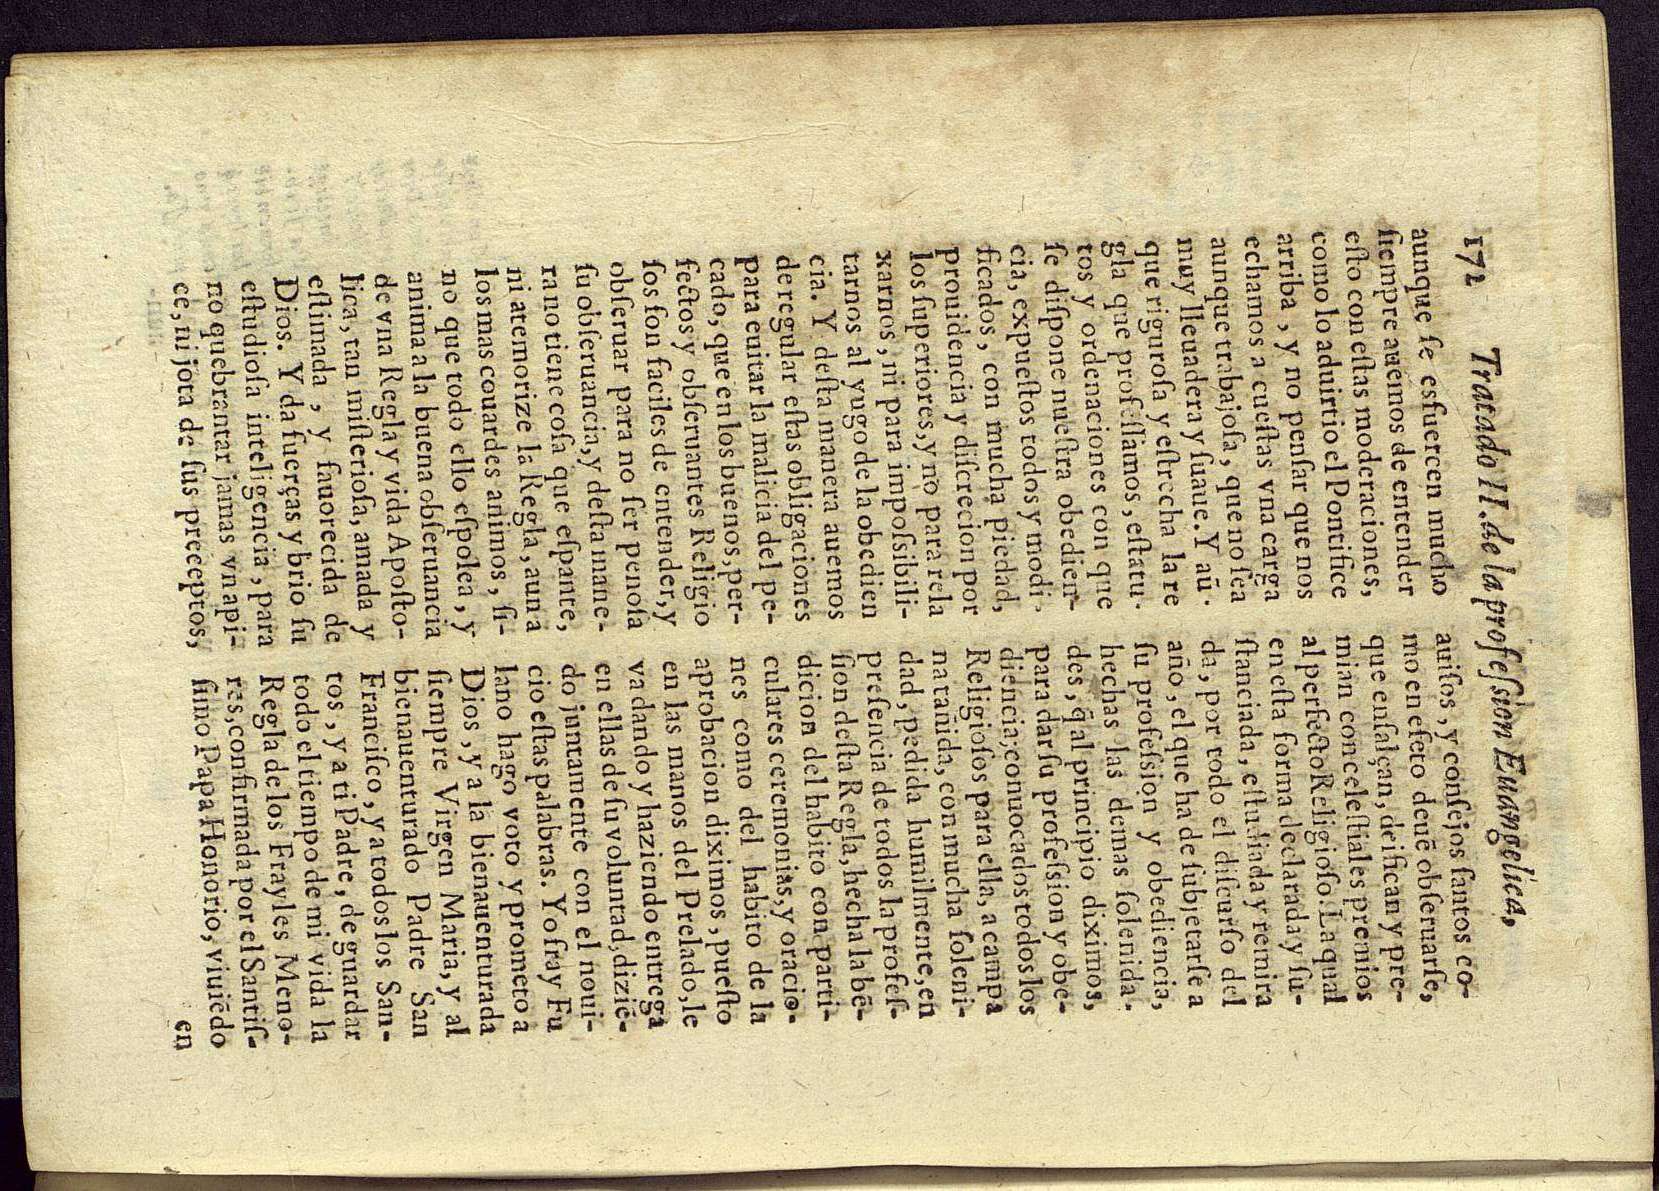 172 Tratado II. de la profeſsion Euangelica,
aunque ſe esfuercen mucho
ſiempre auemos de entender
eſto con eſtas moderaciones,
como lo aduirtio el Pontifice
arriba, y no penſar que nos
echamos a cueſtas vna carga
aunque trabajoſa, que no ſea
muy lleuadera y ſuaue. Y aũ
que riguroſa y eſtrecha la re
gla que profeſſamos, eſtatu-
tos y ordenaciones con que
ſe diſpone nueſtra obedien-
cia, expueſtos todos y modi-
ficados, con mucha piedad,
prouidencia y diſcrecion por
los ſuperiores, y no para rela
xarnos, ni para impoſsibili-
tarnos al yugo de la obedien
cia. Y deſta manera auemos
de regular eſtas obligaciones
para euitar la malicia del pe-
cado, que en los buenos, per-
fectos y obſeruantes Religio
ſos ſon faciles de entender, y
obſeruar para no ſer penoſa
ſu obſeruancia, y deſta mane-
ra no tiene coſa que eſpante,
ni atemorize la Regla, aun a
los mas couardes animos, ſi-
no que todo ello eſpolea, y
anima a la buena obſeruancia
de vna Regla y vida Apoſto-
lica, tan miſterioſa, amada y
eſtimada, y fauorecida de
Dios. Y da fuerças y brio ſu
eſtudioſa inteligencia, para
no quebrantar jamas vn api-
ce, ni jota de ſus preceptos,
auiſos, y conſejos ſantos co-
mo en efeto deuẽ obſeruarſe,
que enſalçan, deifican y pre-
mian con celeſtiales premios
al perfecto Religioſo. La qual
en eſta forma declarada y ſu-
ſtanciada, eſtudiada y remira
da, por todo el diſcurſo del
año, el que ha de ſubjetarſe a
ſu profeſsion y obediencia,
hechas las demas ſolenida-
des, q̃ al principio diximos,
para dar ſu profeſsion y obe-
diencia, conuocados todos los
Religioſos para ella, a campa
na tañida, con mucha ſoleni-
dad, pedida humilmente, en
preſencia de todos la profeſ-
ſion deſta Regla, hecha la bẽ-
dicion del habito con parti-
culares ceremonias, y oracio-
nes como del habito de la
aprobacion diximos, pueſto
en las manos del Prelado, le
va dando y haziendo entrega
en ellas de ſu voluntad, diziẽ-
do juntamente con el noui-
cio eſtas palabras. Yo fray Fu
lano hago voto y prometo a
Dios, y a la bienauenturada
ſiempre Virgen Maria, y al
bienauenturado Padre San
Franciſco, y a todos los San-
tos, y a ti Padre, de guardar
todo el tiempo de mi vida la
Regla de los Frayles Meno-
res, confirmada por el Santiſ-
ſimo Papa Honorio, viuiẽdo
en